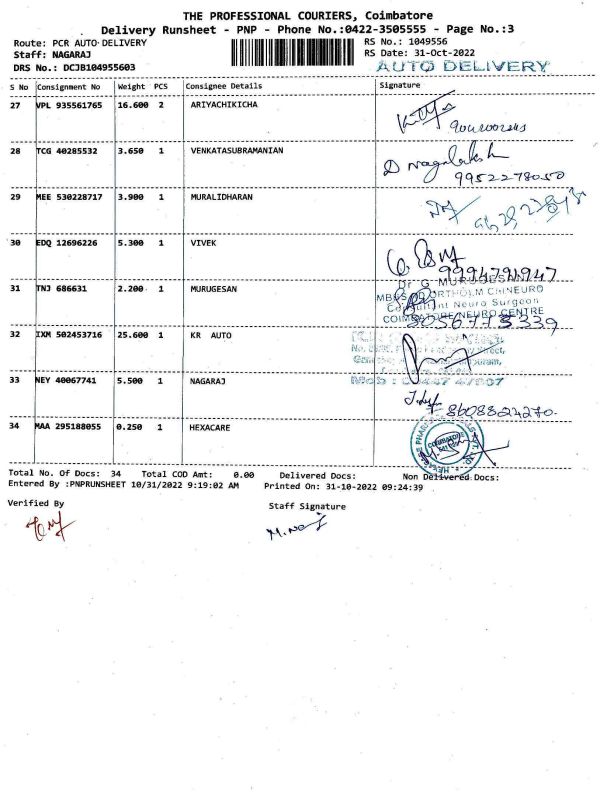 THE PROFESSIONAL COURIERS, Coimbatore
Delivery Runsheet - PNP - Phone No.:0422-3505555 - Page No.:3
Route: PCR AUTO DELIVERY RS No.: 1049556
Staff: NAGARAJ RS Date: 31-Oct-2022
DRS No.: DCJB104955603 AUTO DELIVERY
S No Consignment No Weight PCS Consignee Details Signature
27 VPL 935561765 16.600 2 ARIYACHIKICHA
28 TCG 40285532 3.650 1 VENKATASUBRAMANIAN
D Nagalakesh
9952278050
29 MEE 530228717 3.900 1 MURALIDHARAN
30 EDQ 12696226 5.300 1 VIVEK
9994791947
31 TNJ 686631 2.200 1 MURUGESAN
Dr G MURUGESAN
MBBS ORTHO
Consultant Neuro Surgeon
COIMBATORE NEURO CENTRE
32 IXM 502453716 25.600 1 KR AUTO
33 NEY 40067741 5.500 1 NAGARAJ
8608824270
34 MAA 295188055 0.250 1 HEXACARE
COIMBATORE
Total No. Of Docs: 34 Total COD Amt: 0.00 Delivered Docs: Non Delivered Docs:
Entered By :PNPRUNSHEET 10/31/2022 9:19:02 AM Printed On: 31-10-2022 09:24:39
Verified By Staff Signature